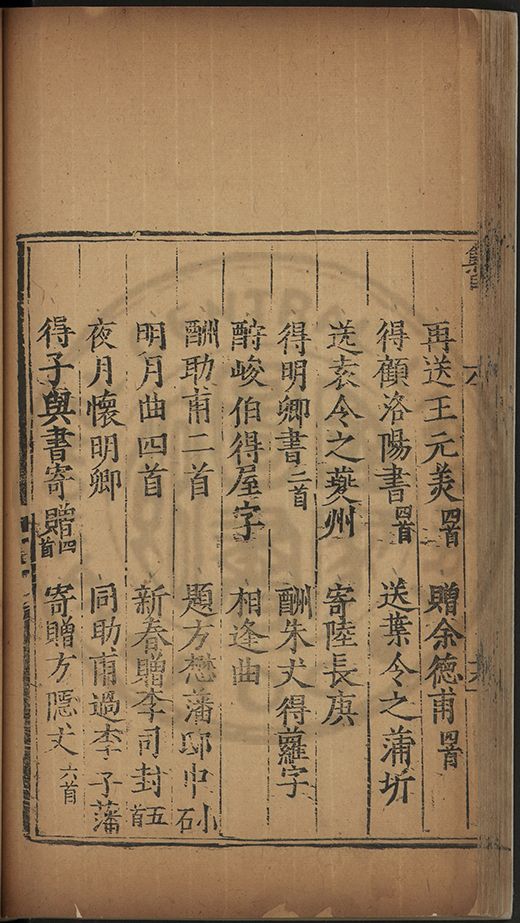 再送王元美四首　贈余德甫四首
得顧洛陽書四首　送葉令之蒲圻
送袁令之夔州　寄陸長庚
得明卿書二首　酬朱丈得蘿字
酹峻伯得屋字　相逢曲
酬助甫二首　題方懋藩邸中矽
明月曲四首　新春贈李司封五首
夜月懷明卿　同助甫過李子藩
得子與書寄贈四首　寄贈方隱丈六首